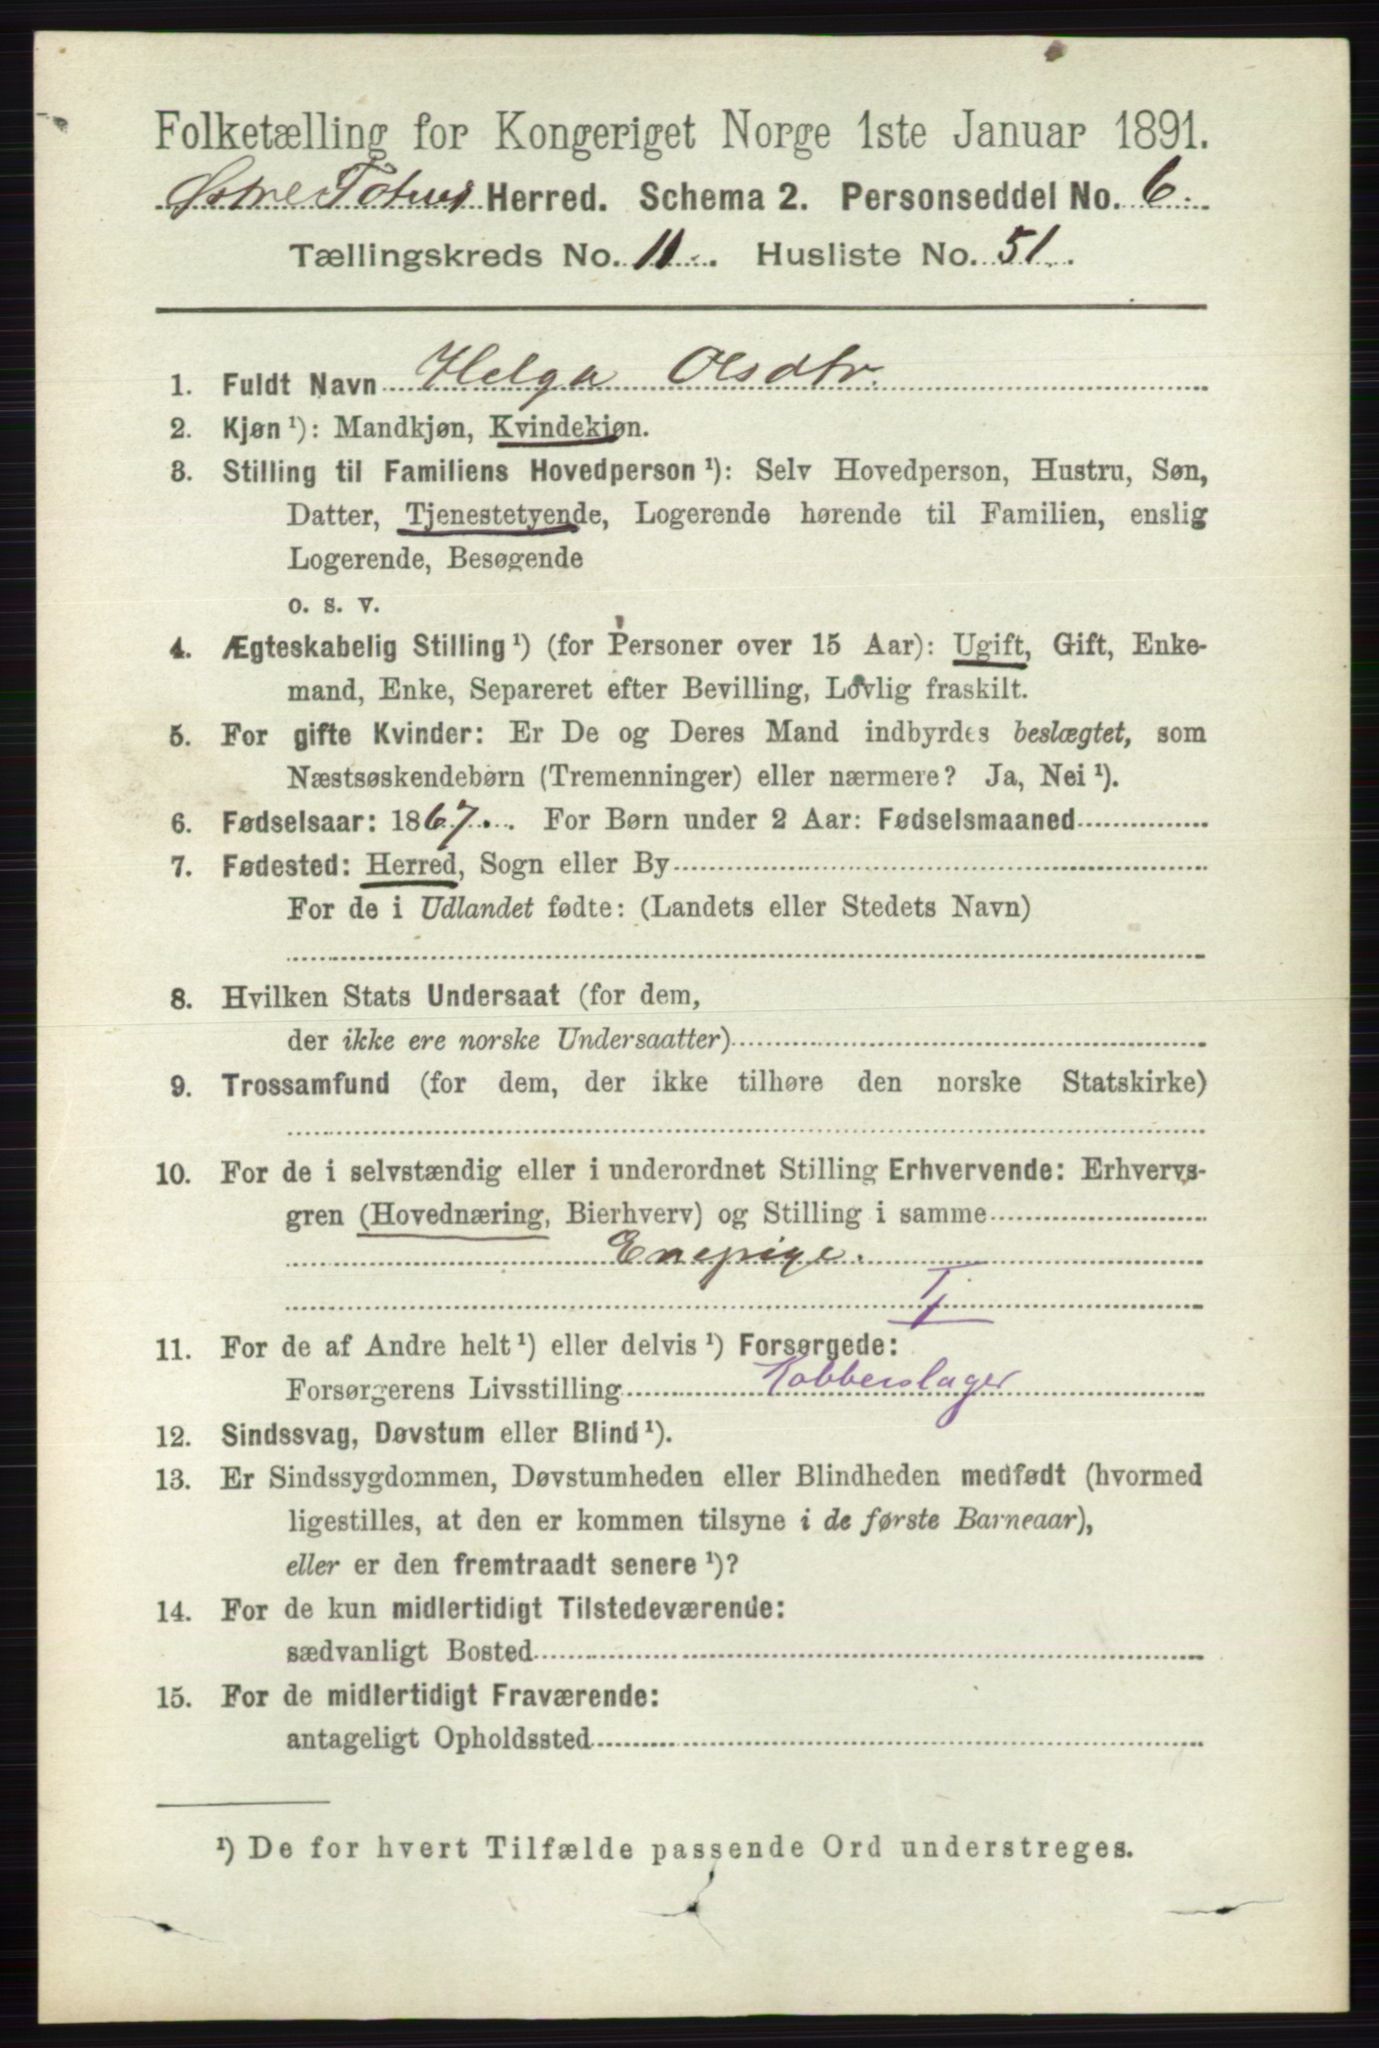 Folketælling for Kongeriget Norge 1ste Januar 1891.
Østre Totens Herred. Schema 2. Personseddel No. 6.
Tællingskreds No. 11. Husliste No. 51.
1. Fuldt Navn Helga Olsdtr.
2. Kjøn ¹): Mandkjøn, Kvindekjøn.
3. Stilling til Familiens Hovedperson ¹): Selv Hovedperson, Hustru, Søn,
Datter, Tjenestetyende, Logerende hørende til Familien, enslig
Logerende, Besøgende
o. s. v.
4. Ægteskabelig Stilling ¹) (for Personer over 15 Aar): Ugift, Gift, Enke-
mand, Enke, Separeret efter Bevilling, Lovlig fraskilt.
5. For gifte Kvinder: Er De og Deres Mand indbyrdes beslægtet, som
Næstsøskendebørn (Tremenninger) eller nærmere? Ja, Nei ¹).
6. Fødselsaar: 1867. For Børn under 2 Aar: Fødselsmaaned
7. Fødested: Herred, Sogn eller By
For de i Udlandet fødte: (Landets eller Stedets Navn)
8. Hvilken Stats Undersaat (for dem,
der ikke ere norske Undersaatter)
9. Trossamfund (for dem, der ikke tilhøre den norske Statskirke)
10. For de i selvstændig eller i underordnet Stilling Erhvervende: Erhvervs-
gren (Hovednæring, Bierhverv) og Stilling i samme
Enepige.
Tj
11. For de af Andre helt ¹) eller delvis ¹) Forsørgede:
Forsørgerens Livsstilling Kobberslager
12. Sindssvag, Døvstum eller Blind ¹).
13. Er Sindssygdommen, Døvstumheden eller Blindheden medfødt (hvormed
ligestilles, at den er kommen tilsyne i de første Barneaar),
eller er den fremtraadt senere ¹)?
14. For de kun midlertidigt Tilstedeværende:
sædvanligt Bosted
15. For de midlertidigt Fraværende:
antageligt Opholdssted
¹) De for hvert Tilfælde passende Ord understreges.